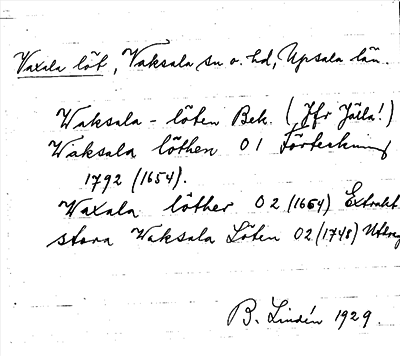 Vaxala löt, Vaksala sn o. hd, Upsala län.
Waksala - löten Bek. (Jfr Jälla!)
Waksala löthen 01 Förteckning
1792 (1654).
Waxala löther 02 (1664) Extrakt
stora Waksala Löten 02 (1748) Utdrag
B. Lindén 1929.